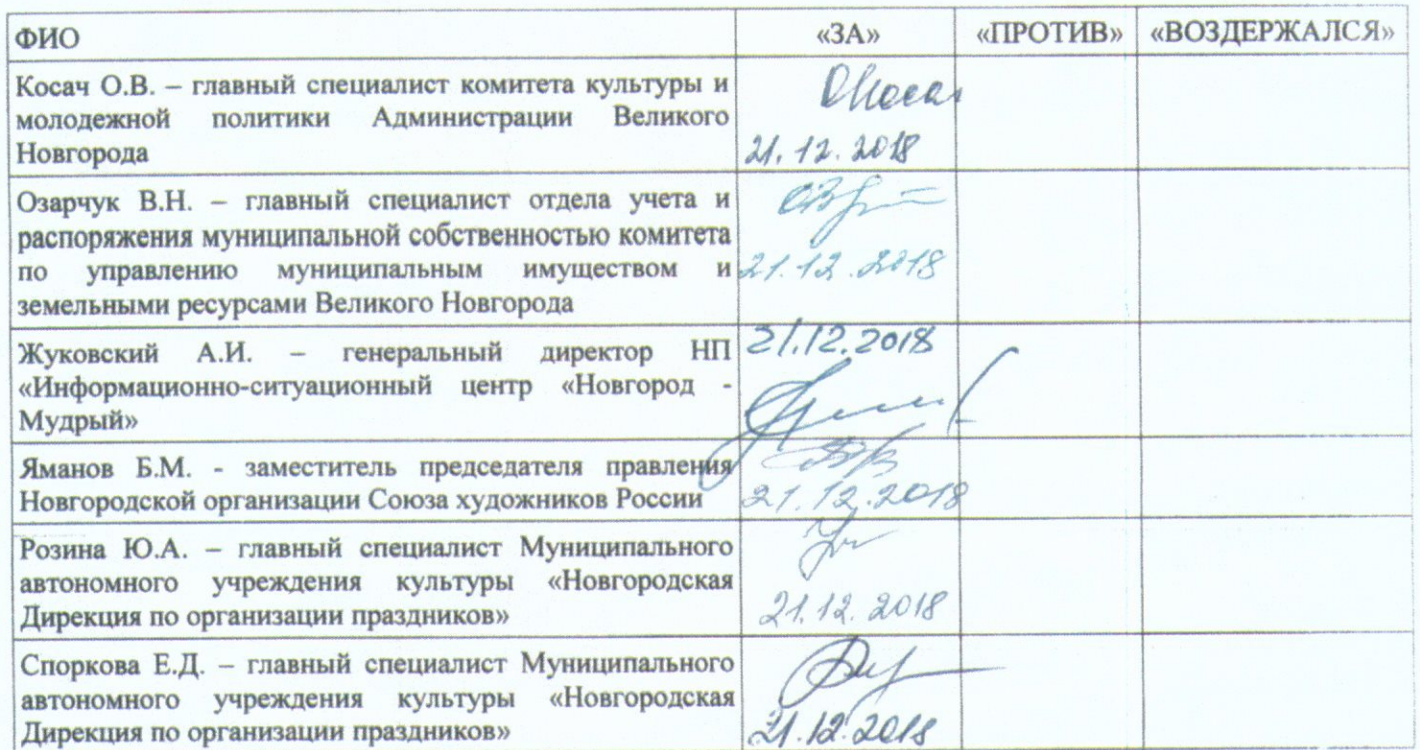 ФИО «ЗА» «ПРОТИВ» «ВОЗДЕРЖАЛСЯ»
Косач О.В. – главный специалист комитета культуры и
молодежной политики Администрации Великого
Новгорода
21.12.2018
Озарчук В.Н. – главный специалист отдела учета и
распоряжения муниципальной собственностью комитета
по управлению муниципальным имуществом и
земельными ресурсами Великого Новгорода
21.12.2018
Жуковский А.И. – генеральный директор НП
«Информационно-ситуационный центр «Новгород -
Мудрый»
21.12.2018
Яманов Б.М. - заместитель председателя правления
Новгородской организации Союза художников России
21.12.2018
Розина Ю.А. – главный специалист Муниципального
автономного учреждения культуры «Новгородская
Дирекция по организации праздников»
21.12.2018
Споркова Е.Д. – главный специалист Муниципального
автономного учреждения культуры «Новгородская
Дирекция по организации праздников»
21.12.2018